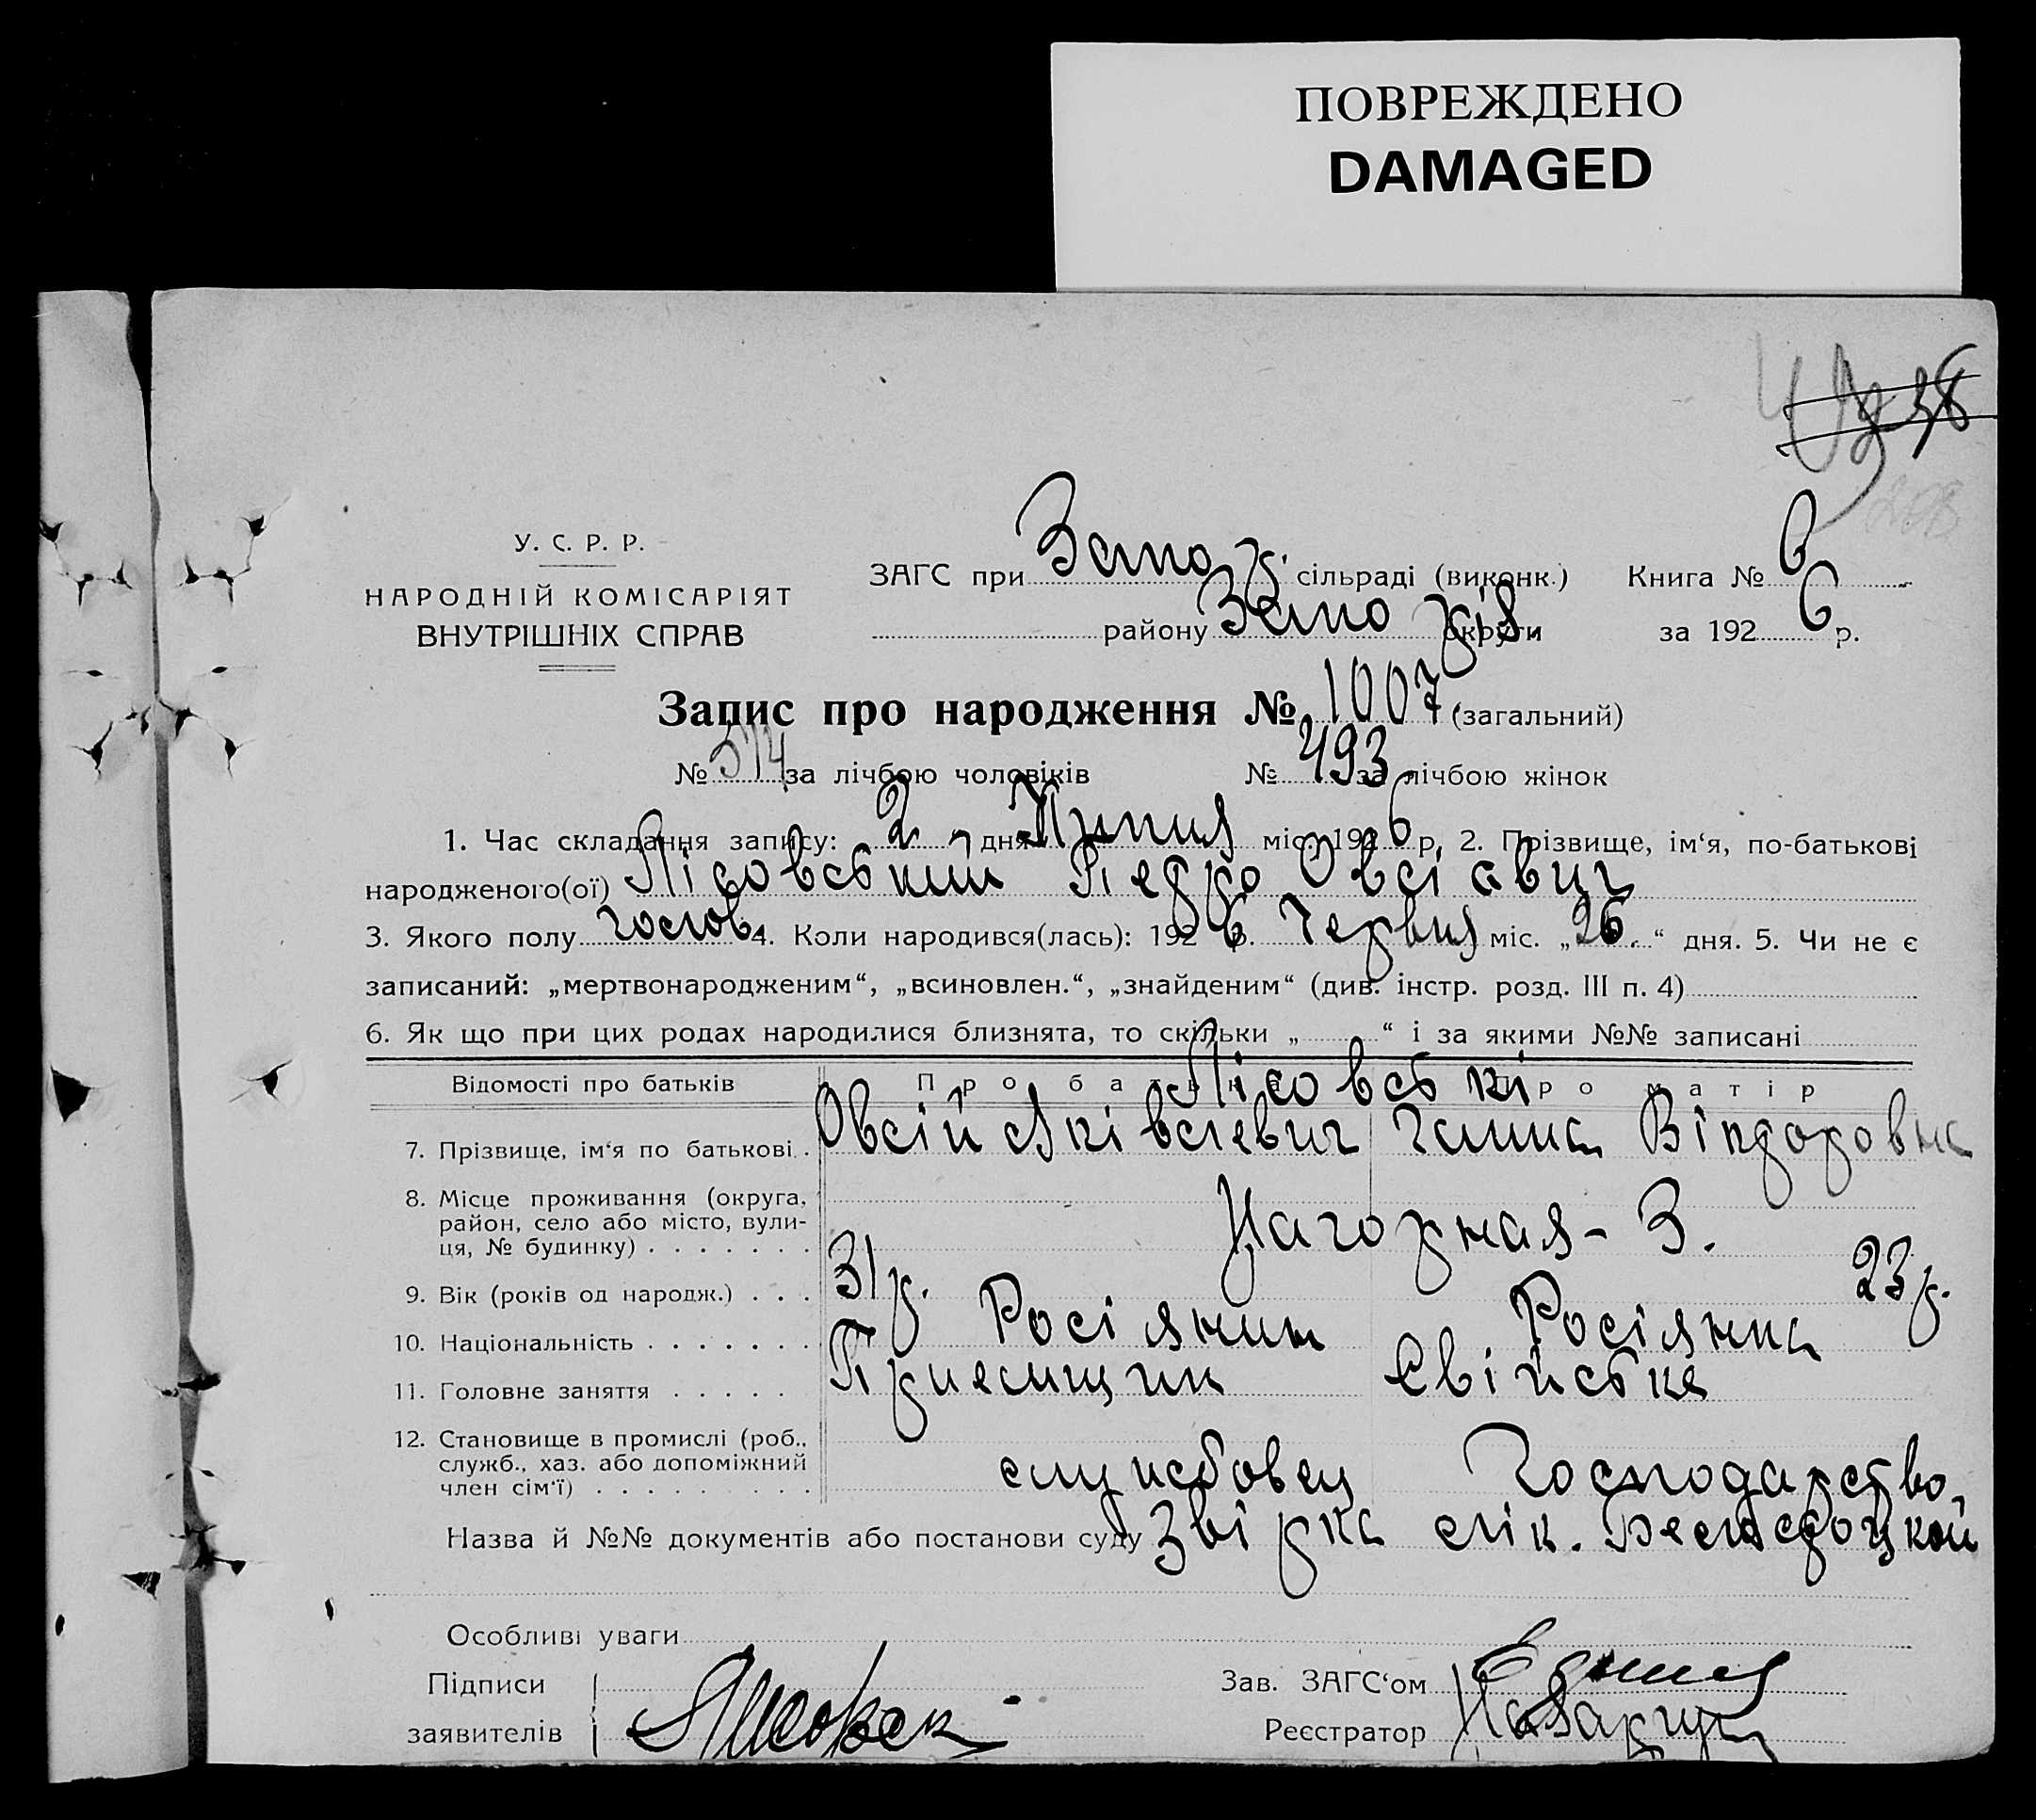 ПОВРЕЖДЕНО
DAMAGED
У. С. Р. Р.
НАРОДНІЙ КОМІСАРІЯТ
ВНУТРІШНІХ СПРАВ
ЗАГС при Запо р. сільраді (виконк.) Книга № 6
району Запо різ. округи за 192 6 р.
Запис про народження № 1007 (загальний)
№ 514 за лічбою чоловіків № 493 за лічбою жінок
1. Час складання запису: 2 дня Липня міс. 192 6 р. 2. Прізвище, ім'я, по-батькові
народженого(ої) Лісовський Педро Овсієвич
3. Якого полу чолов. 4. Коли народився(лась): 192 6 р. Червня міс. „26.“ дня. 5. Чи не є
записаний: „мертвонародженим“, „всиновлен.“, „знайденим“ (див. інстр. розд. III п. 4)
6. Як що при цих родах народилися близнята, то скільки „ “ і за якими №№ записані
Відомості про батьків Про батька Лісовські Про матір
7. Прізвище, ім'я по батькові. . Овсій Яківлевич Галина Вікдоровна
8. Місце проживання (округа,
район, село або місто, вули-
ця, № будинку) . . . . . . . Нагорная - 3.
9. Вік (років од народж.) . . . 31 р. 23 р.
10. Національність . . . . . . . Росіянин Росіянка
11. Головне заняття . . . . . Приемщик Свійська
12. Становище в промислі (роб.,
служб., хаз. або допоміжний
член сім'ї) . . . . . . . . . службовец Господарство,
Назва й №№ документів або постанови суду Звірка лік.
Особливі уваги
Підписи
заявителів
Зав. ЗАГС'ом
Реєстратор